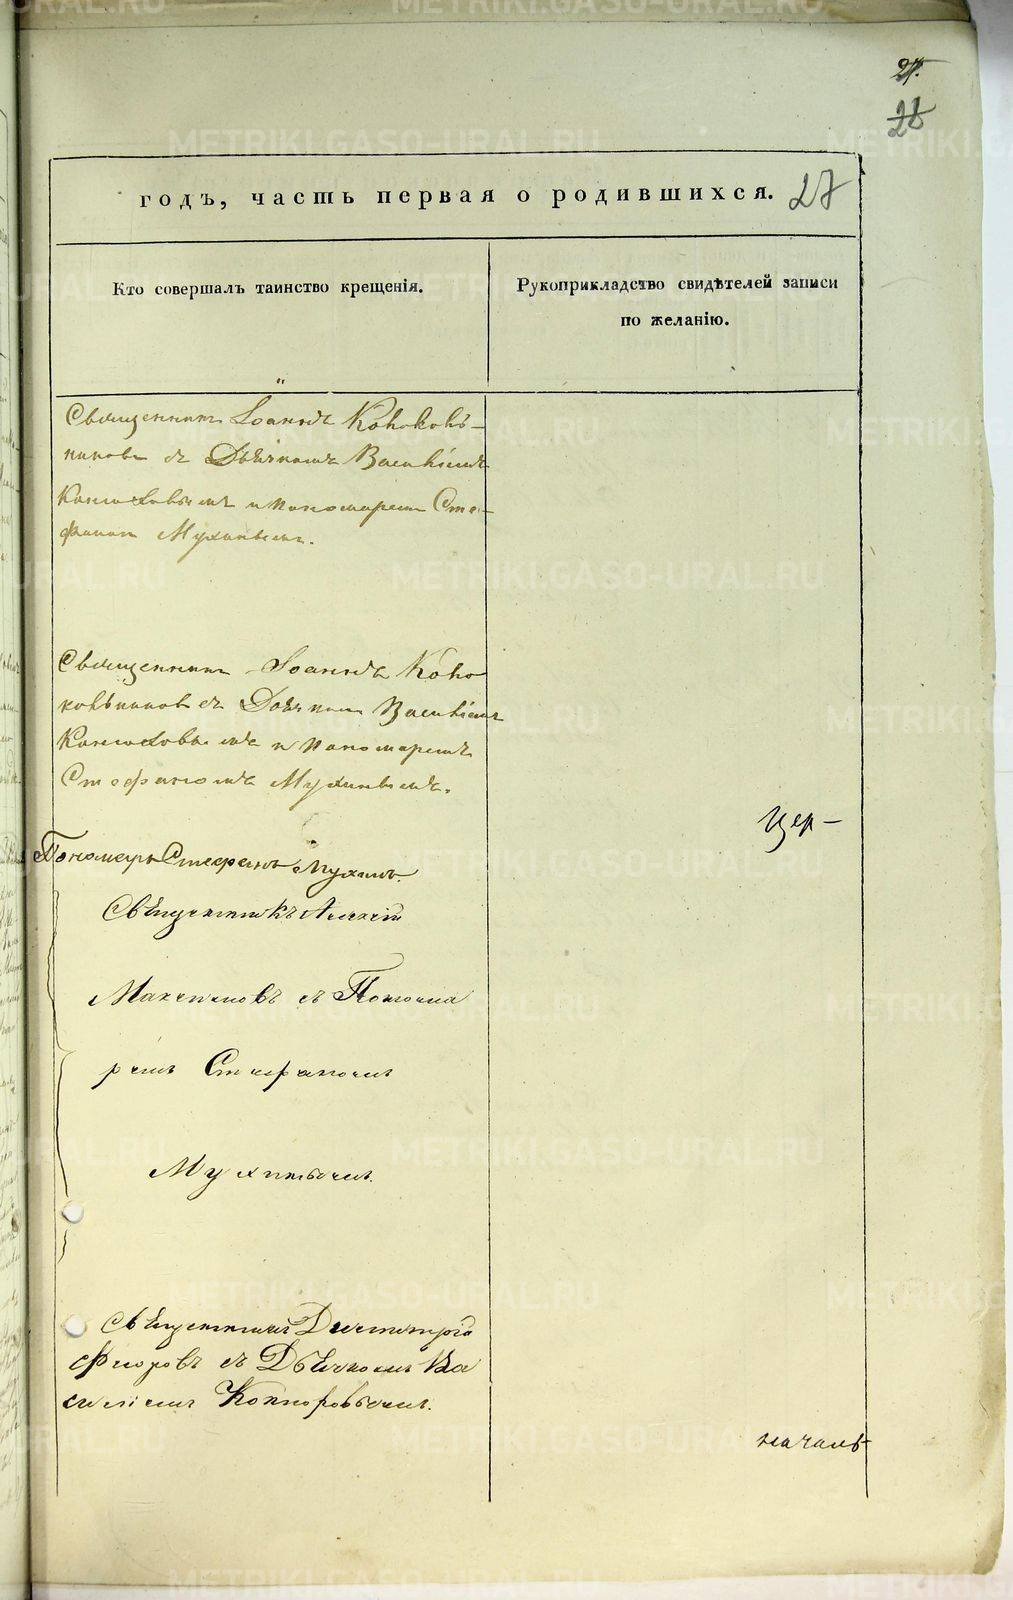 27.
28
годъ, часть первая о родившихся. 27
Кто совершалъ таинство крещенія.
Рукоприкладство свидѣтелей записи
по желанію.
Священникъ Іоаннъ Коноковъ-
никовъ съ Дьячкомъ Василіемъ
и пономаремъ Сте-
фаномъ Мухинымъ.
Священникъ Іоаннъ Коно
ковниковъ съ Дьячкомъ Василіемъ
и пономаремъ
Стефаномъ Мухинымъ.
Цер-
Пономарь Стефанъ Мухинъ.
Священникъ Алексій
съ Понома
ремъ Стефаномъ
Мухинымъ.
Священникъ Димитрій
Флоровъ съ Дьячкомъ Ва
силіемъ
началь-
METRIKI.GASO-URAL.RU